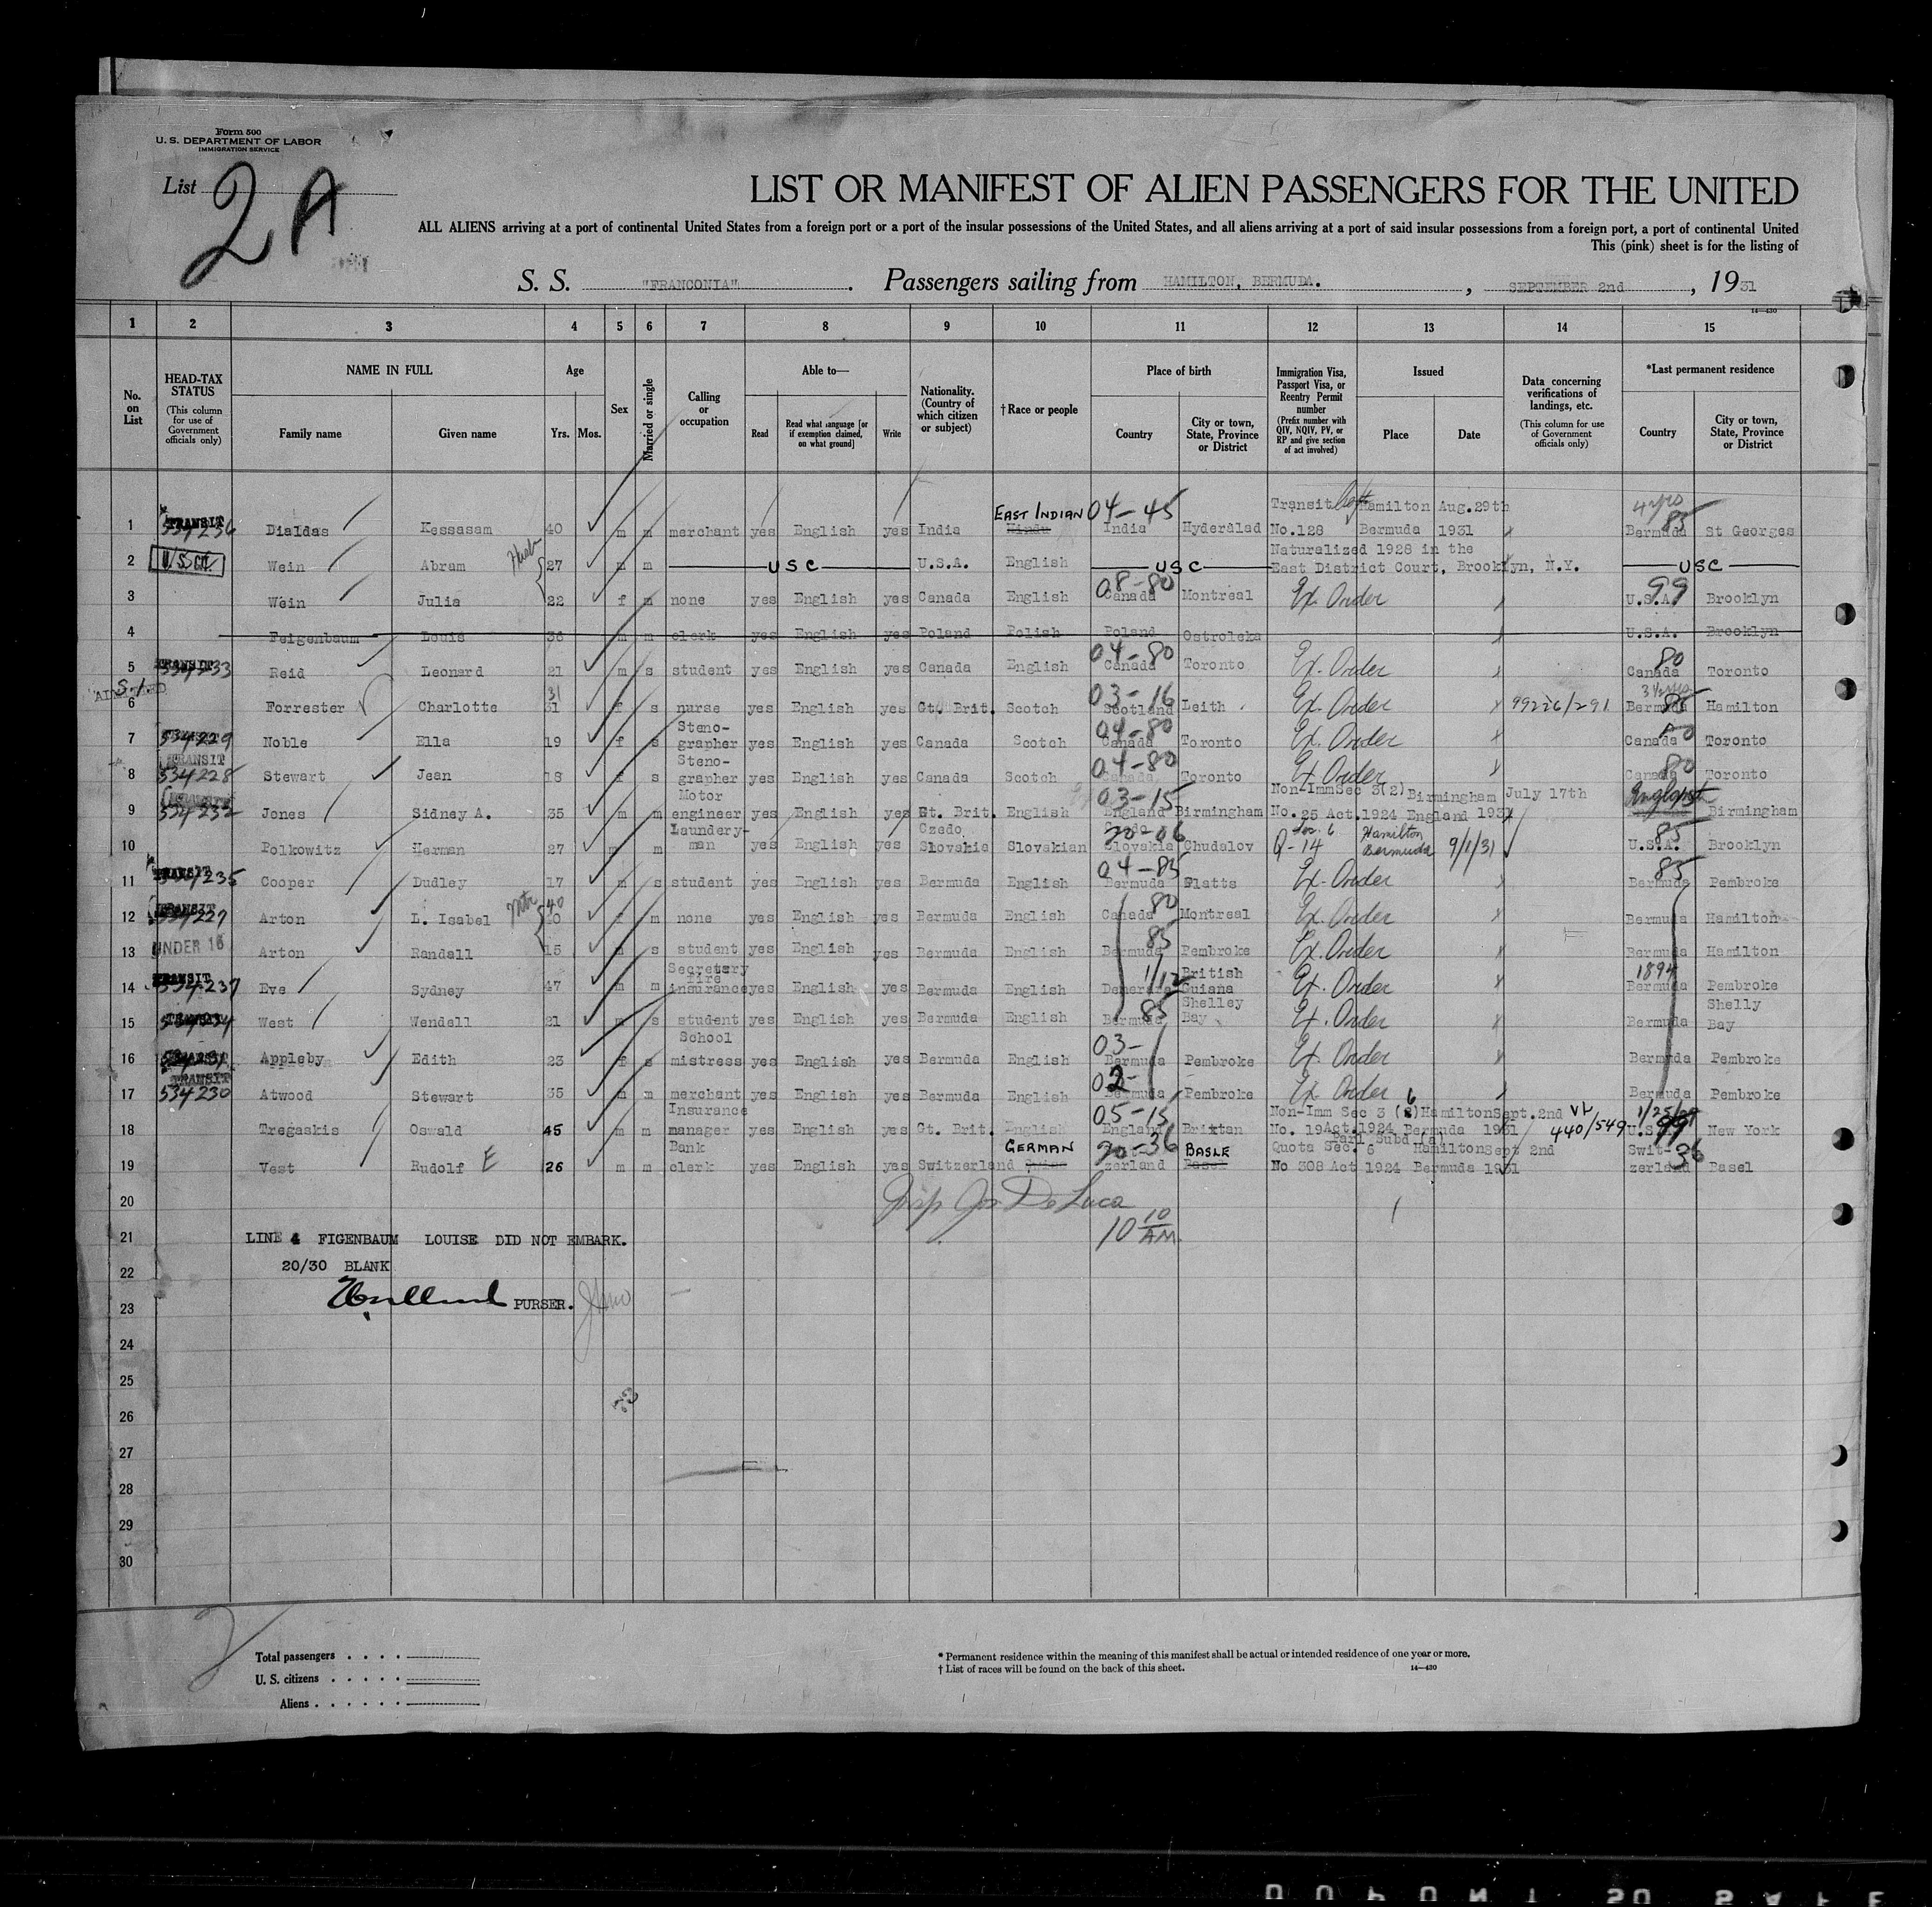 Form 500
U. S. DEPARTMENT OF LABOR
IMMIGRATION SERVICE
List 2 A
LIST OR MANIFEST OF ALIEN PASSENGERS FOR THE UNITED
ALL ALIENS arriving at a port of continental United States from a foreign port or a port of the insular possessions of the United States, and all aliens arriving at a port of said insular possessions from a foreign port, a port of continental United
This (pink) sheet is for the listing of
S. S. "FRANCONIA". Passengers sailing from HAMILTON, BERMUDA. , SEPTEMBER 2nd , 1931
14—430
1 2 3 4 5 6 7 8 9 10 11 12 13 14 15
No. on List
HEAD-TAX STATUS (This column for use of Government officials only)
NAME IN FULL Family name Given name
Age Yrs. Mos.
Sex
Married or single
Calling or occupation
Able to— Read Read what language [or if exemption claimed, on what ground] Write
Nationality. (Country of which citizen or subject)
†Race or people
Place of birth Country City or town, State, Province or District
Immigration Visa, Passport Visa, or Reentry Permit number (Prefix number with QIV, NQIV, PV, or RP and give section of act involved)
Issued Place Date
Data concerning verifications of landings, etc. (This column for use of Government officials only)
*Last permanent residence Country City or town, State, Province or District
1 TRANSIT 534236 Dialdas Kessasam 40 m m merchant yes English yes India EAST INDIAN Hindu 04-45 India Hyderalad Transit No.128 Hamilton Bermuda Aug.29th 1931 4 yrs 85 Bermuda St Georges
2 U.S. CIT. Wein Abram Husb 27 m m USC U.S.A. English USC Naturalized 1928 in the East District Court, Brooklyn, N.Y. USC
3 Wein Julia 22 f m none yes English yes Canada English 08-80 Canada Montreal Ex. Order 99 U.S.A. Brooklyn
4 Feigenbaum Louis 36 m m clerk yes English yes Poland Polish Poland Ostroleka U.S.A. Brooklyn
5 TRANSIT 534233 Reid Leonard 21 m s student yes English yes Canada English 04-80 Canada Toronto Ex. Order 80 Canada Toronto
S.I. ADMITTED
6 Forrester Charlotte 31 31 f s nurse yes English yes Gt. Brit. Scotch 03-16 Scotland Leith Ex. Order 99226/291 3 1/2 yrs 85 Bermuda Hamilton
7 534229 Noble Ella 19 f s Steno-grapher yes English yes Canada Scotch 04-80 Canada Toronto Ex. Order 80 Canada Toronto
8 TRANSIT 534228 Stewart Jean 18 f s Steno-grapher yes English yes Canada Scotch 04-80 Canada Toronto Ex. Order 80 Canada Toronto
9 TRANSIT 534232 Jones Sidney A. 35 m m Motor engineer yes English yes Gt. Brit. English 03-15 England Birmingham Non-Imm Sec 3(2) No. 25 Act 1924 Birmingham England July 17th 1931 England Birmingham
10 Polkowitz Herman 27 m m Laundery-man yes English yes Czedo Slovakia Slovakian 20 06 Czedo Slovakia Chudalov Sec. 6 Q-14 Hamilton Bermuda 9/1/31 85 U.S.A. Brooklyn
11 TRANSIT 534235 Cooper Dudley 17 m s student yes English yes Bermuda English 04-85 Bermuda Flatts Ex. Order 85 Bermuda Pembroke
12 TRANSIT 534227 Arton L. Isabel Mtr 40 40 f m none yes English yes Bermuda English 80 Canada Montreal Ex. Order Bermuda Hamilton
13 UNDER 16 Arton Randall 15 m s student yes English yes Bermuda English 85 Bermuda Pembroke Ex. Order Bermuda Hamilton
14 TRANSIT 534237 Eve Sydney 47 m m Secretary fire insurance yes English yes Bermuda English 1/12 Demerara British Guiana Ex. Order 1894 Bermuda Pembroke
15 TRANSIT 534234 West Wendell 21 m s student yes English yes Bermuda English 85 Bermuda Shelley Bay Ex. Order Bermuda Shelly Bay
16 TRANSIT 534231 Appleby Edith 23 f s School mistress yes English yes Bermuda English 03- Bermuda Pembroke Ex. Order Bermuda Pembroke
17 TRANSIT 534230 Atwood Stewart 35 m m merchant yes English yes Bermuda English 02- Bermuda Pembroke Ex. Order Bermuda Pembroke
18 Tregaskis Oswald 45 m m Insurance manager yes English yes Gt. Brit. English 05-15 England Brixtan Non-Imm Sec 3 (2) 6 No. 19 Act 1924 Hamilton Bermuda Sept. 2nd 1931 VL 440/549 1/25/29 99 U.S.A. New York
19 Vest Rudolf E 26 m m Bank clerk yes English yes Switzerland GERMAN 20-36 Swit-zerland BASLE Basel Quota Sec. 6 Par1 Subd (a) No 308 Act 1924 Hamilton Bermuda Sept 2nd 1931 Swit-zerland 36 Basel
20 Insp Jos De Luca
21 LINE 4 FIGENBAUM LOUISE DID NOT EMBARK. 10 10 AM.
22 20/30 BLANK
23 PURSER.
24
25
26
27
28
29
30
Total passengers
U. S. citizens
Aliens
* Permanent residence within the meaning of this manifest shall be actual or intended residence of one year or more.
† List of races will be found on the back of this sheet.
14—430